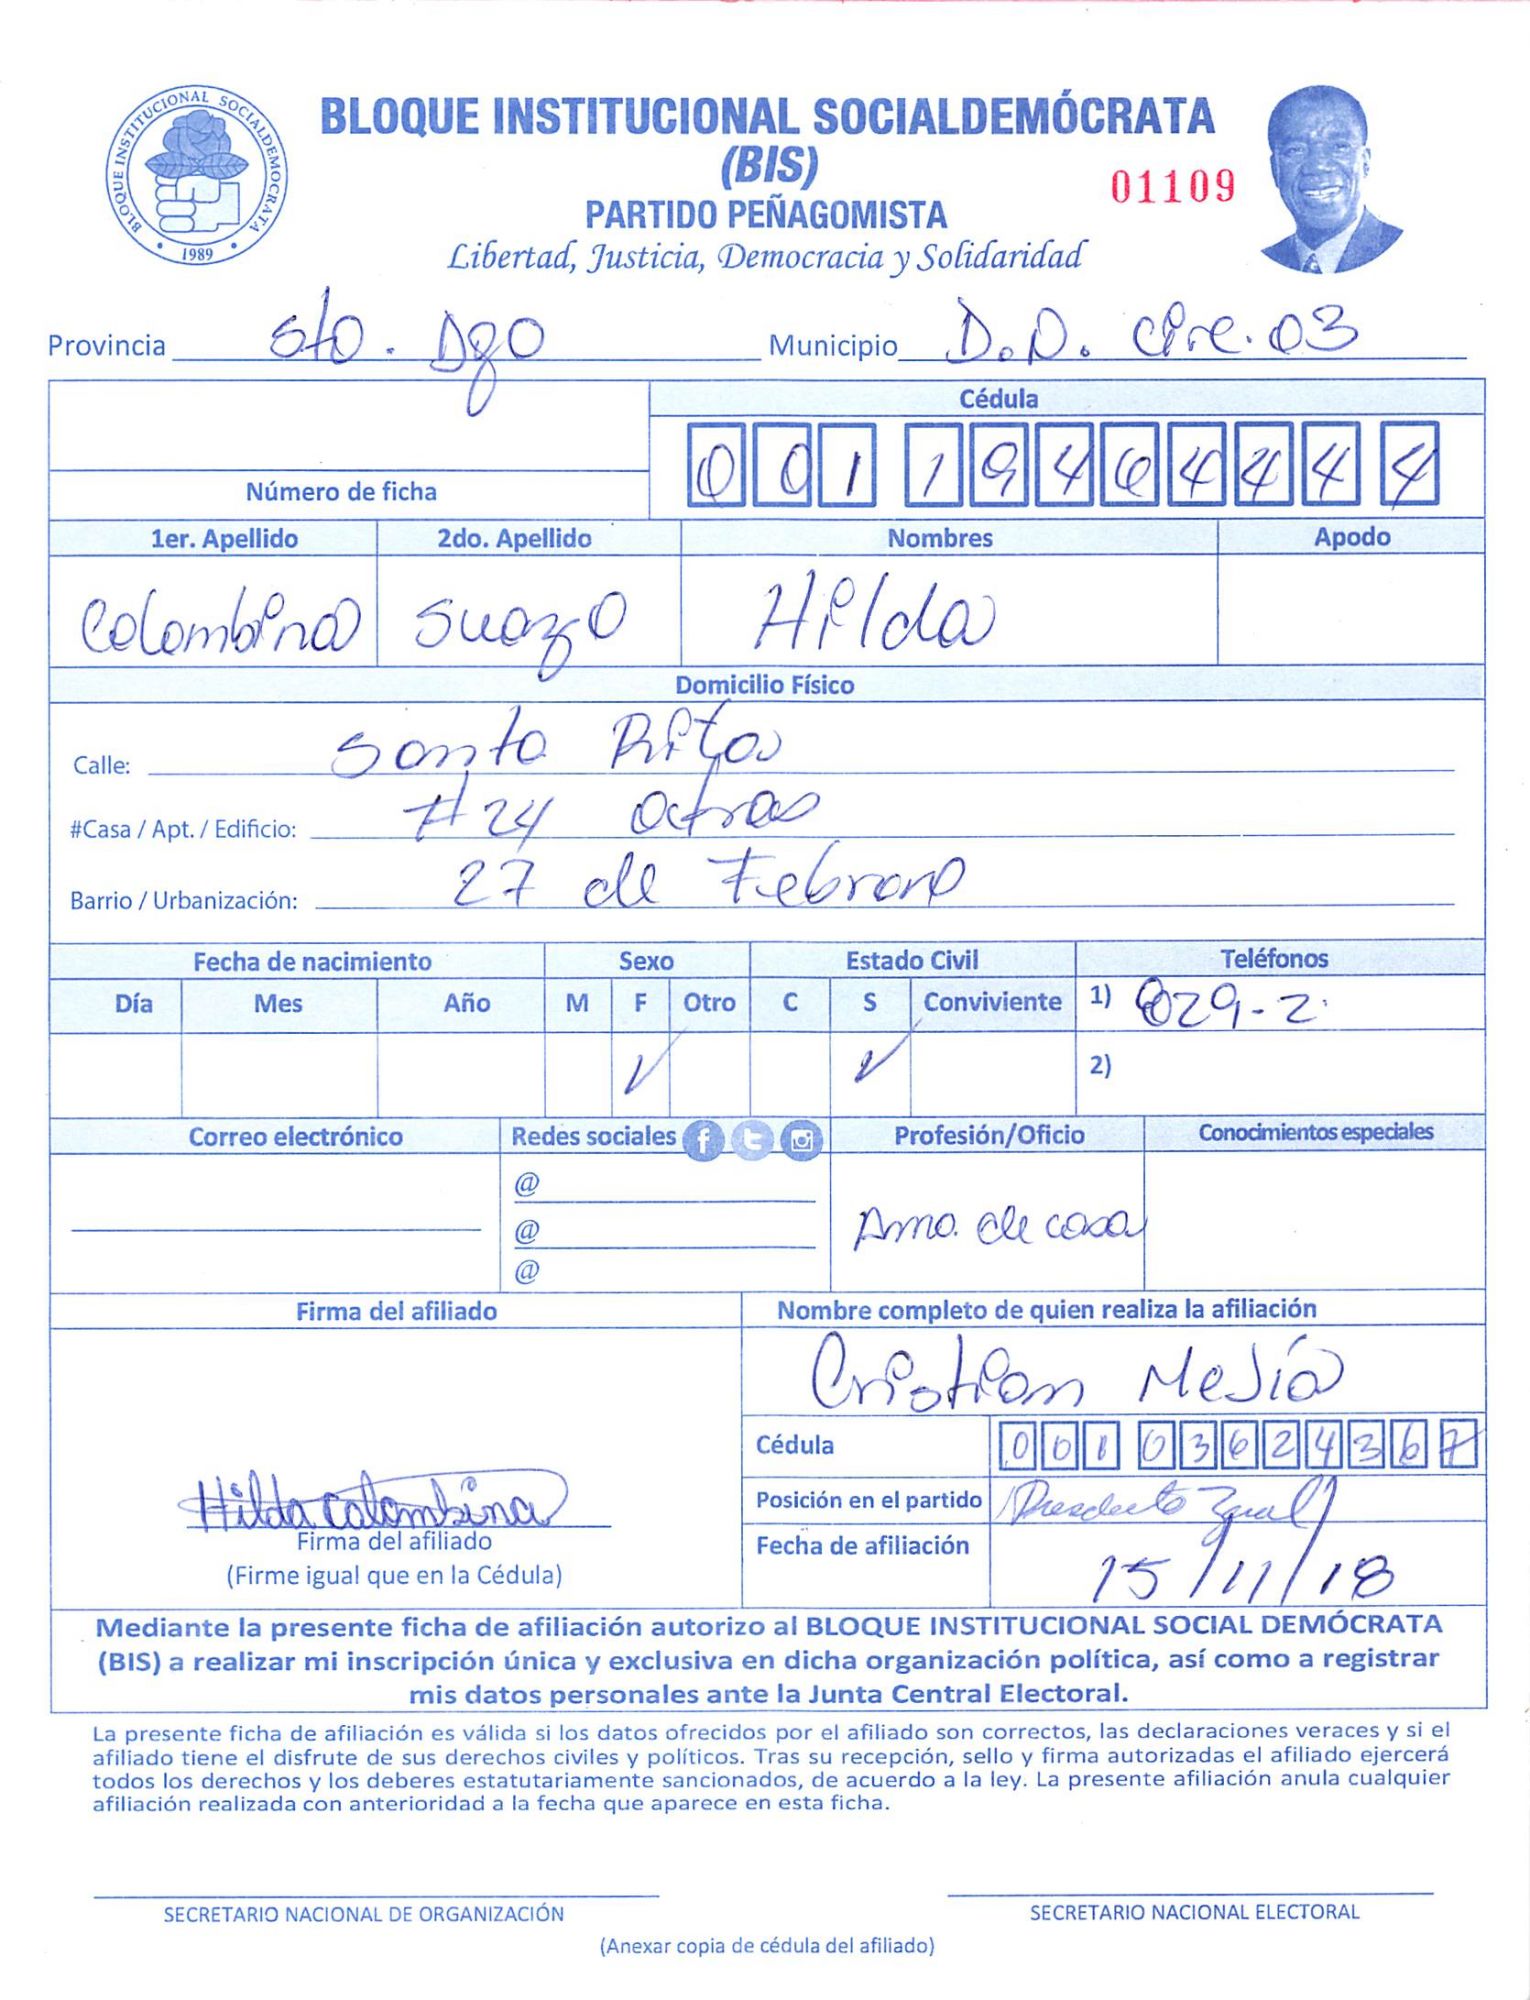 BLOQUE INSTITUCIONAL SOCIALDEMOCRATA
1989
BLOQUE INSTITUCIONAL SOCIALDEMÓCRATA
(BIS)
01109
PARTIDO PEÑAGOMISTA
Libertad, Justicia, Democracia y Solidaridad
Provincia Sto. Dgo Municipio D.N. Circ. 03
Cédula
0 0 1 1 9 4 6 4 4 4 4
Número de ficha
1er. Apellido 2do. Apellido Nombres Apodo
Colombina Suazo Hilda
Domicilio Físico
Calle: Santa Rita
#Casa / Apt. / Edificio: #24 Atras
Barrio / Urbanización: 27 de Febrero
Fecha de nacimiento Sexo Estado Civil Teléfonos
Día Mes Año M F Otro C S Conviviente 1) 829-2
2)
Correo electrónico Redes sociales Profesión/Oficio Conocimientos especiales
@
@
@
Ama de casa
Firma del afiliado Nombre completo de quien realiza la afiliación
Cristian Mejía
Cédula 0 0 1 0 3 6 2 4 3 6 7
Hilda Colombina
Firma del afiliado
(Firme igual que en la Cédula)
Posición en el partido
Fecha de afiliación 15/11/18
Mediante la presente ficha de afiliación autorizo al BLOQUE INSTITUCIONAL SOCIAL DEMÓCRATA
(BIS) a realizar mi inscripción única y exclusiva en dicha organización política, así como a registrar
mis datos personales ante la Junta Central Electoral.
La presente ficha de afiliación es válida si los datos ofrecidos por el afiliado son correctos, las declaraciones veraces y si el
afiliado tiene el disfrute de sus derechos civiles y políticos. Tras su recepción, sello y firma autorizadas el afiliado ejercerá
todos los derechos y los deberes estatutariamente sancionados, de acuerdo a la ley. La presente afiliación anula cualquier
afiliación realizada con anterioridad a la fecha que aparece en esta ficha.
SECRETARIO NACIONAL DE ORGANIZACIÓN SECRETARIO NACIONAL ELECTORAL
(Anexar copia de cédula del afiliado)